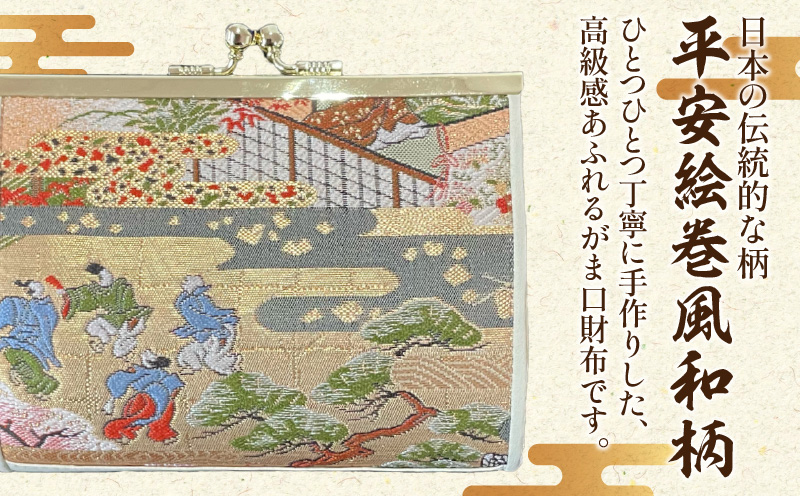 日本の伝統的な柄
平安絵巻風和柄
ひとつひとつ丁寧に手作りした、
高級感あふれるがま口財布です。